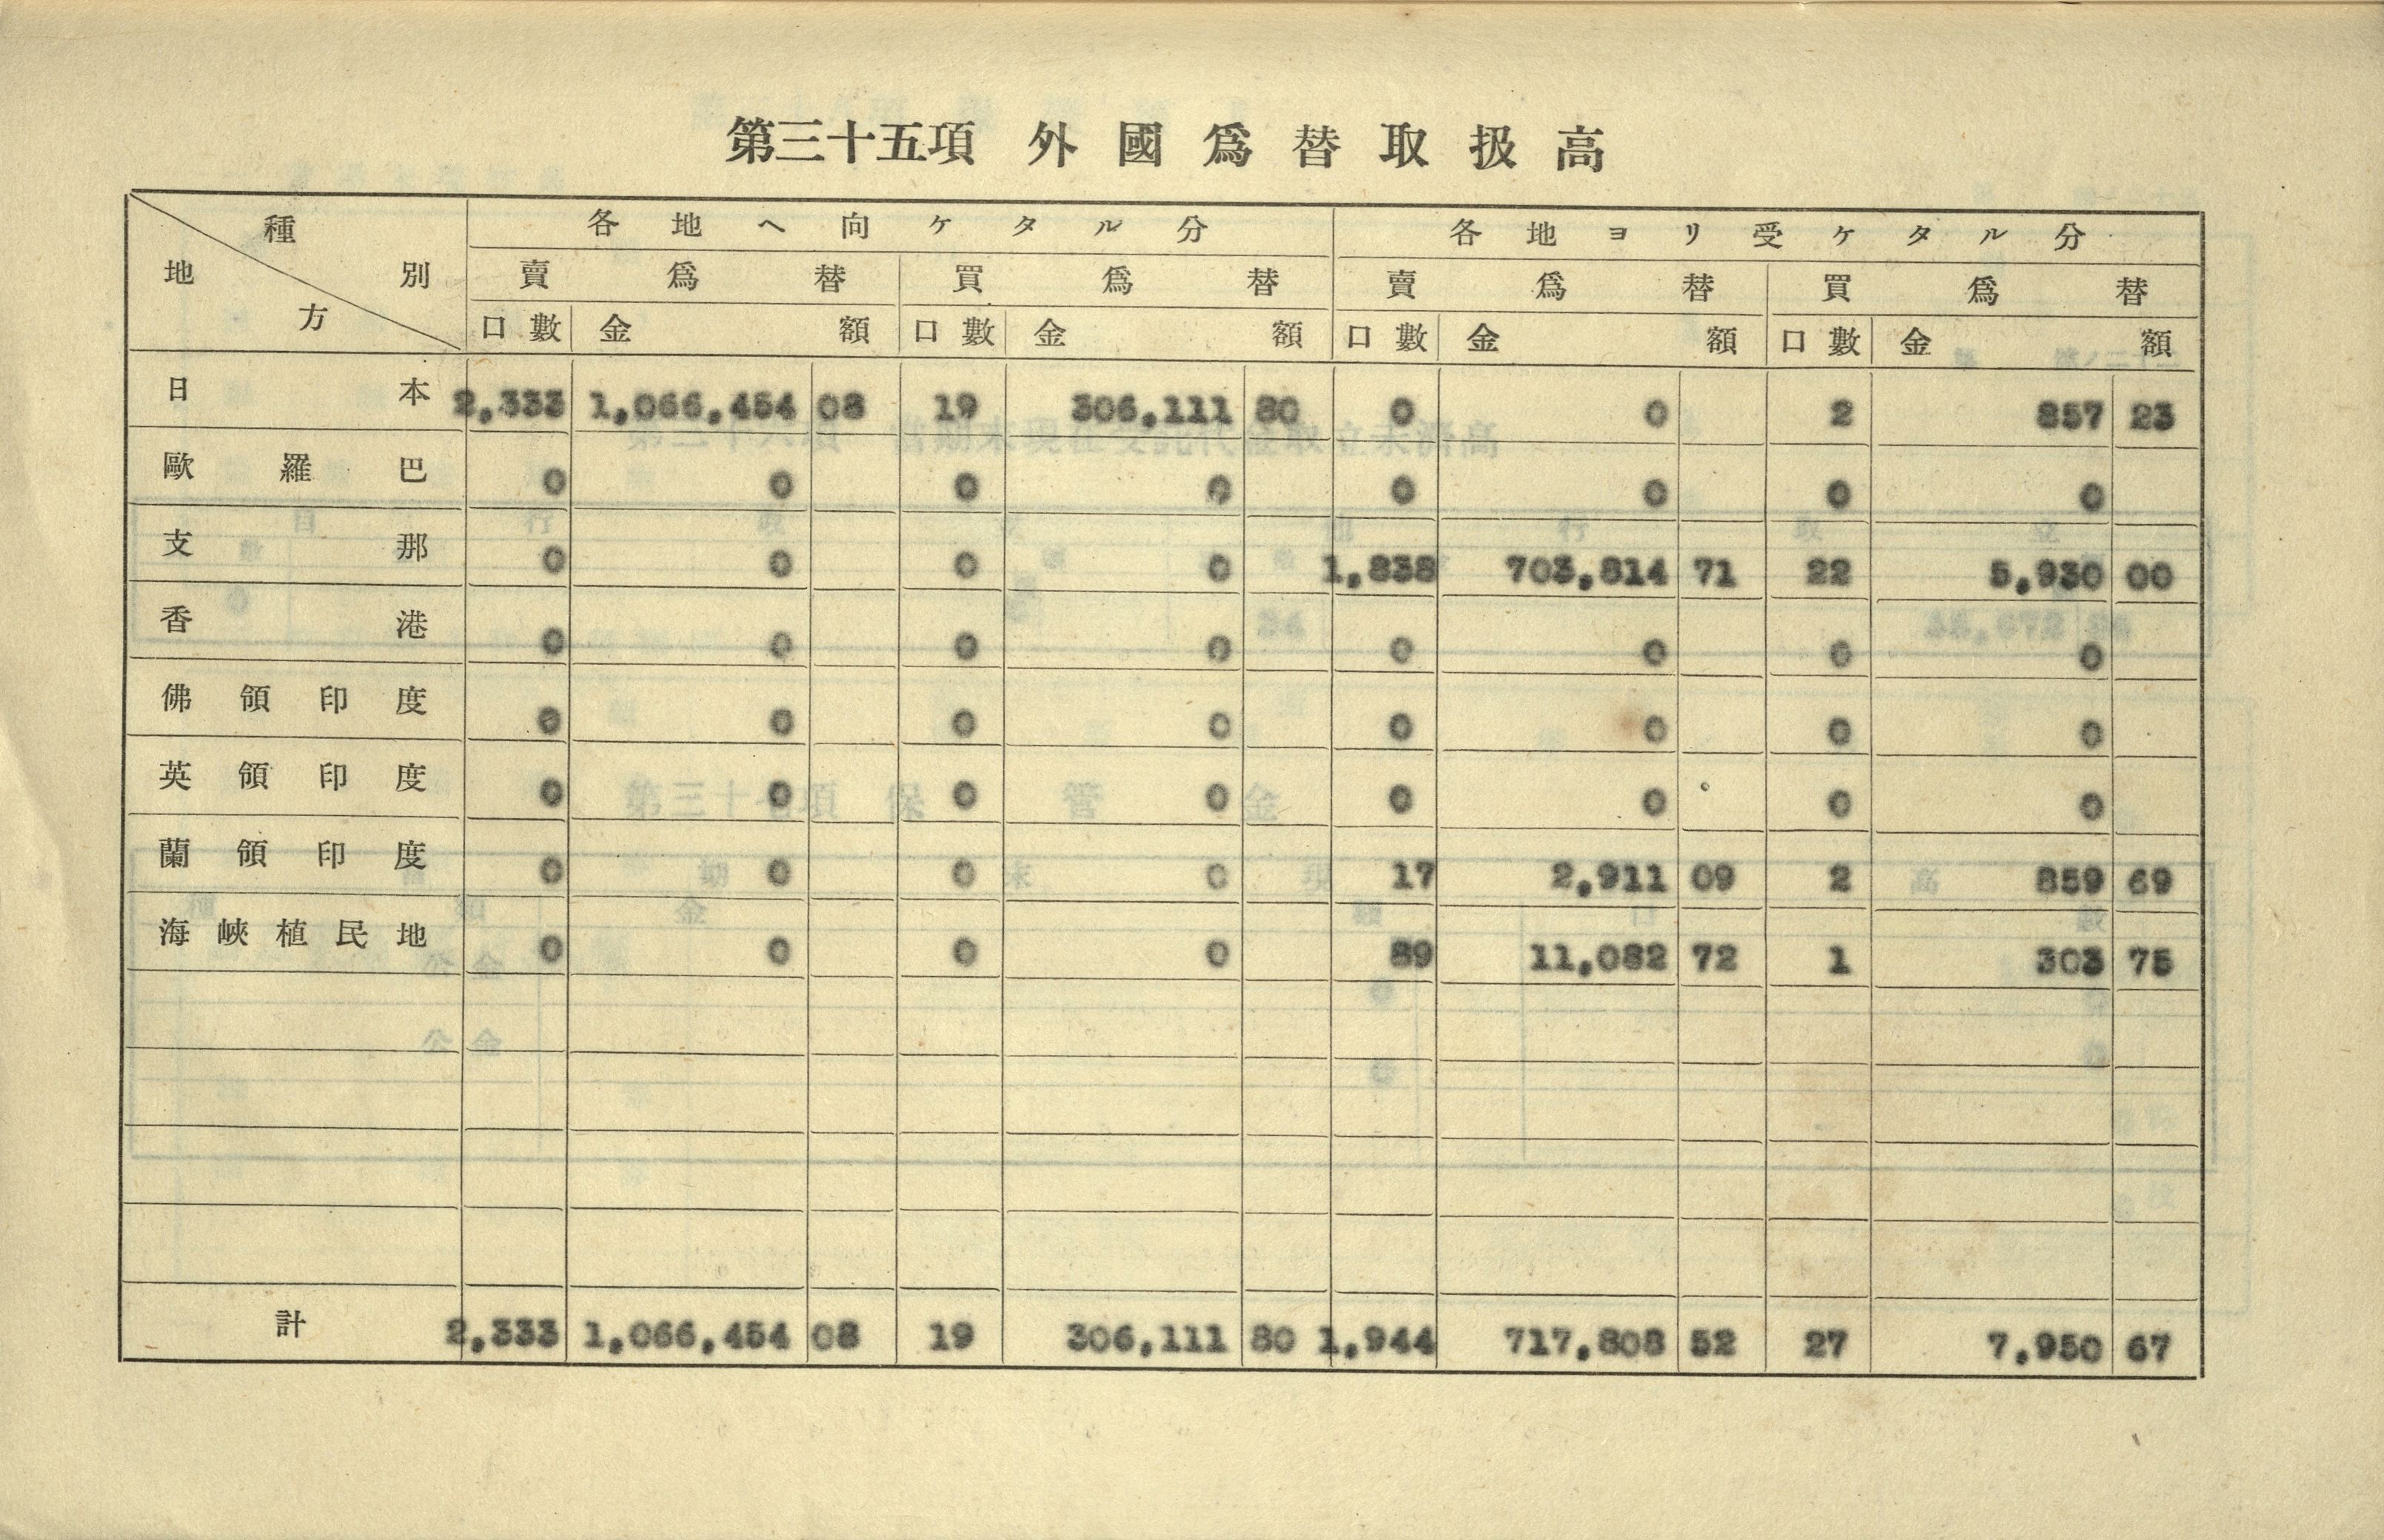 第三十五項 外國爲替取扱高
種別 地方 各地ヘ向ケタル分 各地ヨリ受ケタル分
賣爲替 買爲替 賣爲替 買爲替
口數 金額 口數 金額 口數 金額 口數 金額
日本 2,333 1,066,454 08 19 306,111 80 0 0 2 857 23
歐羅巴 0 0 0 0 0 0 0 0
支那 0 0 0 0 1,838 703,814 71 22 5,930 00
香港 0 0 0 0 0 0 0 0
佛領印度 0 0 0 0 0 0 0 0
英領印度 0 0 0 0 0 0 0 0
蘭領印度 0 0 0 0 17 2,911 09 2 859 69
海峽植民地 0 0 0 0 89 11,082 72 1 303 75
計 2,333 1,066,454 08 19 306,111 80 1,944 717,808 52 27 7,950 67